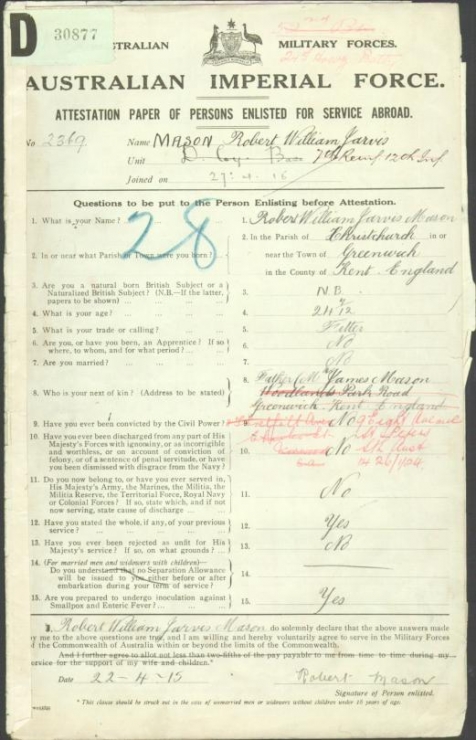 D
30877
AUSTRALIAN MILITARY FORCES.
AUSTRALIAN IMPERIAL FORCE.
ATTESTATION PAPER OF PERSONS ENLISTED FOR SERVICE ABROAD.
No 2369 Name MASON Robert William Jarvis
Unit D. Coy 7th Reinf 12th Inf
Joined on 27.4.15
Questions to be put to the Person Enlisting before Attestation.
28
1. What is your Name? 1. Robert William Jarvis Mason
2. In or near what Parish or Town were you born? 2. In the Parish of Christchurch in or
near the Town of Greenwich
in the County of Kent England
3. Are you a natural born British Subject or a
Naturalized British Subject? (N.B.—If the latter,
papers to be shown) 3. N.B.
4. What is your age? 4. 24 9/12
5. What is your trade or calling? 5. Fitter
6. Are you, or have you been, an Apprentice? If so
where, to whom, and for what period? 6. No
7. Are you married? 7. No
8. Who is your next of kin? (Address to be stated) 8. Father James Mason
Woodlands Park Road
Greenwich Kent England
9. Have you ever been convicted by the Civil Power? 9. No
10. Have you ever been discharged from any part of His
Majesty's Forces with ignominy, or as incorrigible
or worthless, or on account of conviction of
felony, or of a sentence of penal servitude, or have
you been dismissed with disgrace from the Navy? 10. No
11. Do you now belong to, or have you ever served in,
His Majesty's Army, the Marines, the Militia, the
Militia Reserve, the Territorial Force, Royal Navy
or Colonial Forces? If so, state which, and if not
now serving, state cause of discharge 11. No
12. Have you stated the whole, if any, of your previous
service? 12. Yes
13. Have you ever been rejected as unfit for His
Majesty's service? If so, on what grounds? 13. No
14. (For married men and widowers with children)—
Do you understand that no Separation Allowance
will be issued to you either before or after
embarkation during your term of service? 14.
15. Are you prepared to undergo inoculation against
Smallpox and Enteric Fever? 15. Yes
I, Robert William Jarvis Mason do solemnly declare that the above answers made
by me to the above questions are true, and I am willing and hereby voluntarily agree to serve in the Military Forces
of the Commonwealth of Australia within or beyond the limits of the Commonwealth.
And I further agree to allot not less than two-fifths of the pay payable to me from time to time during my
service for the support of my wife and children.*
Date 22-4-15 Robert Mason
Signature of Person enlisted.
* This clause should be struck out in the case of unmarried men or widowers without children under 18 years of age.